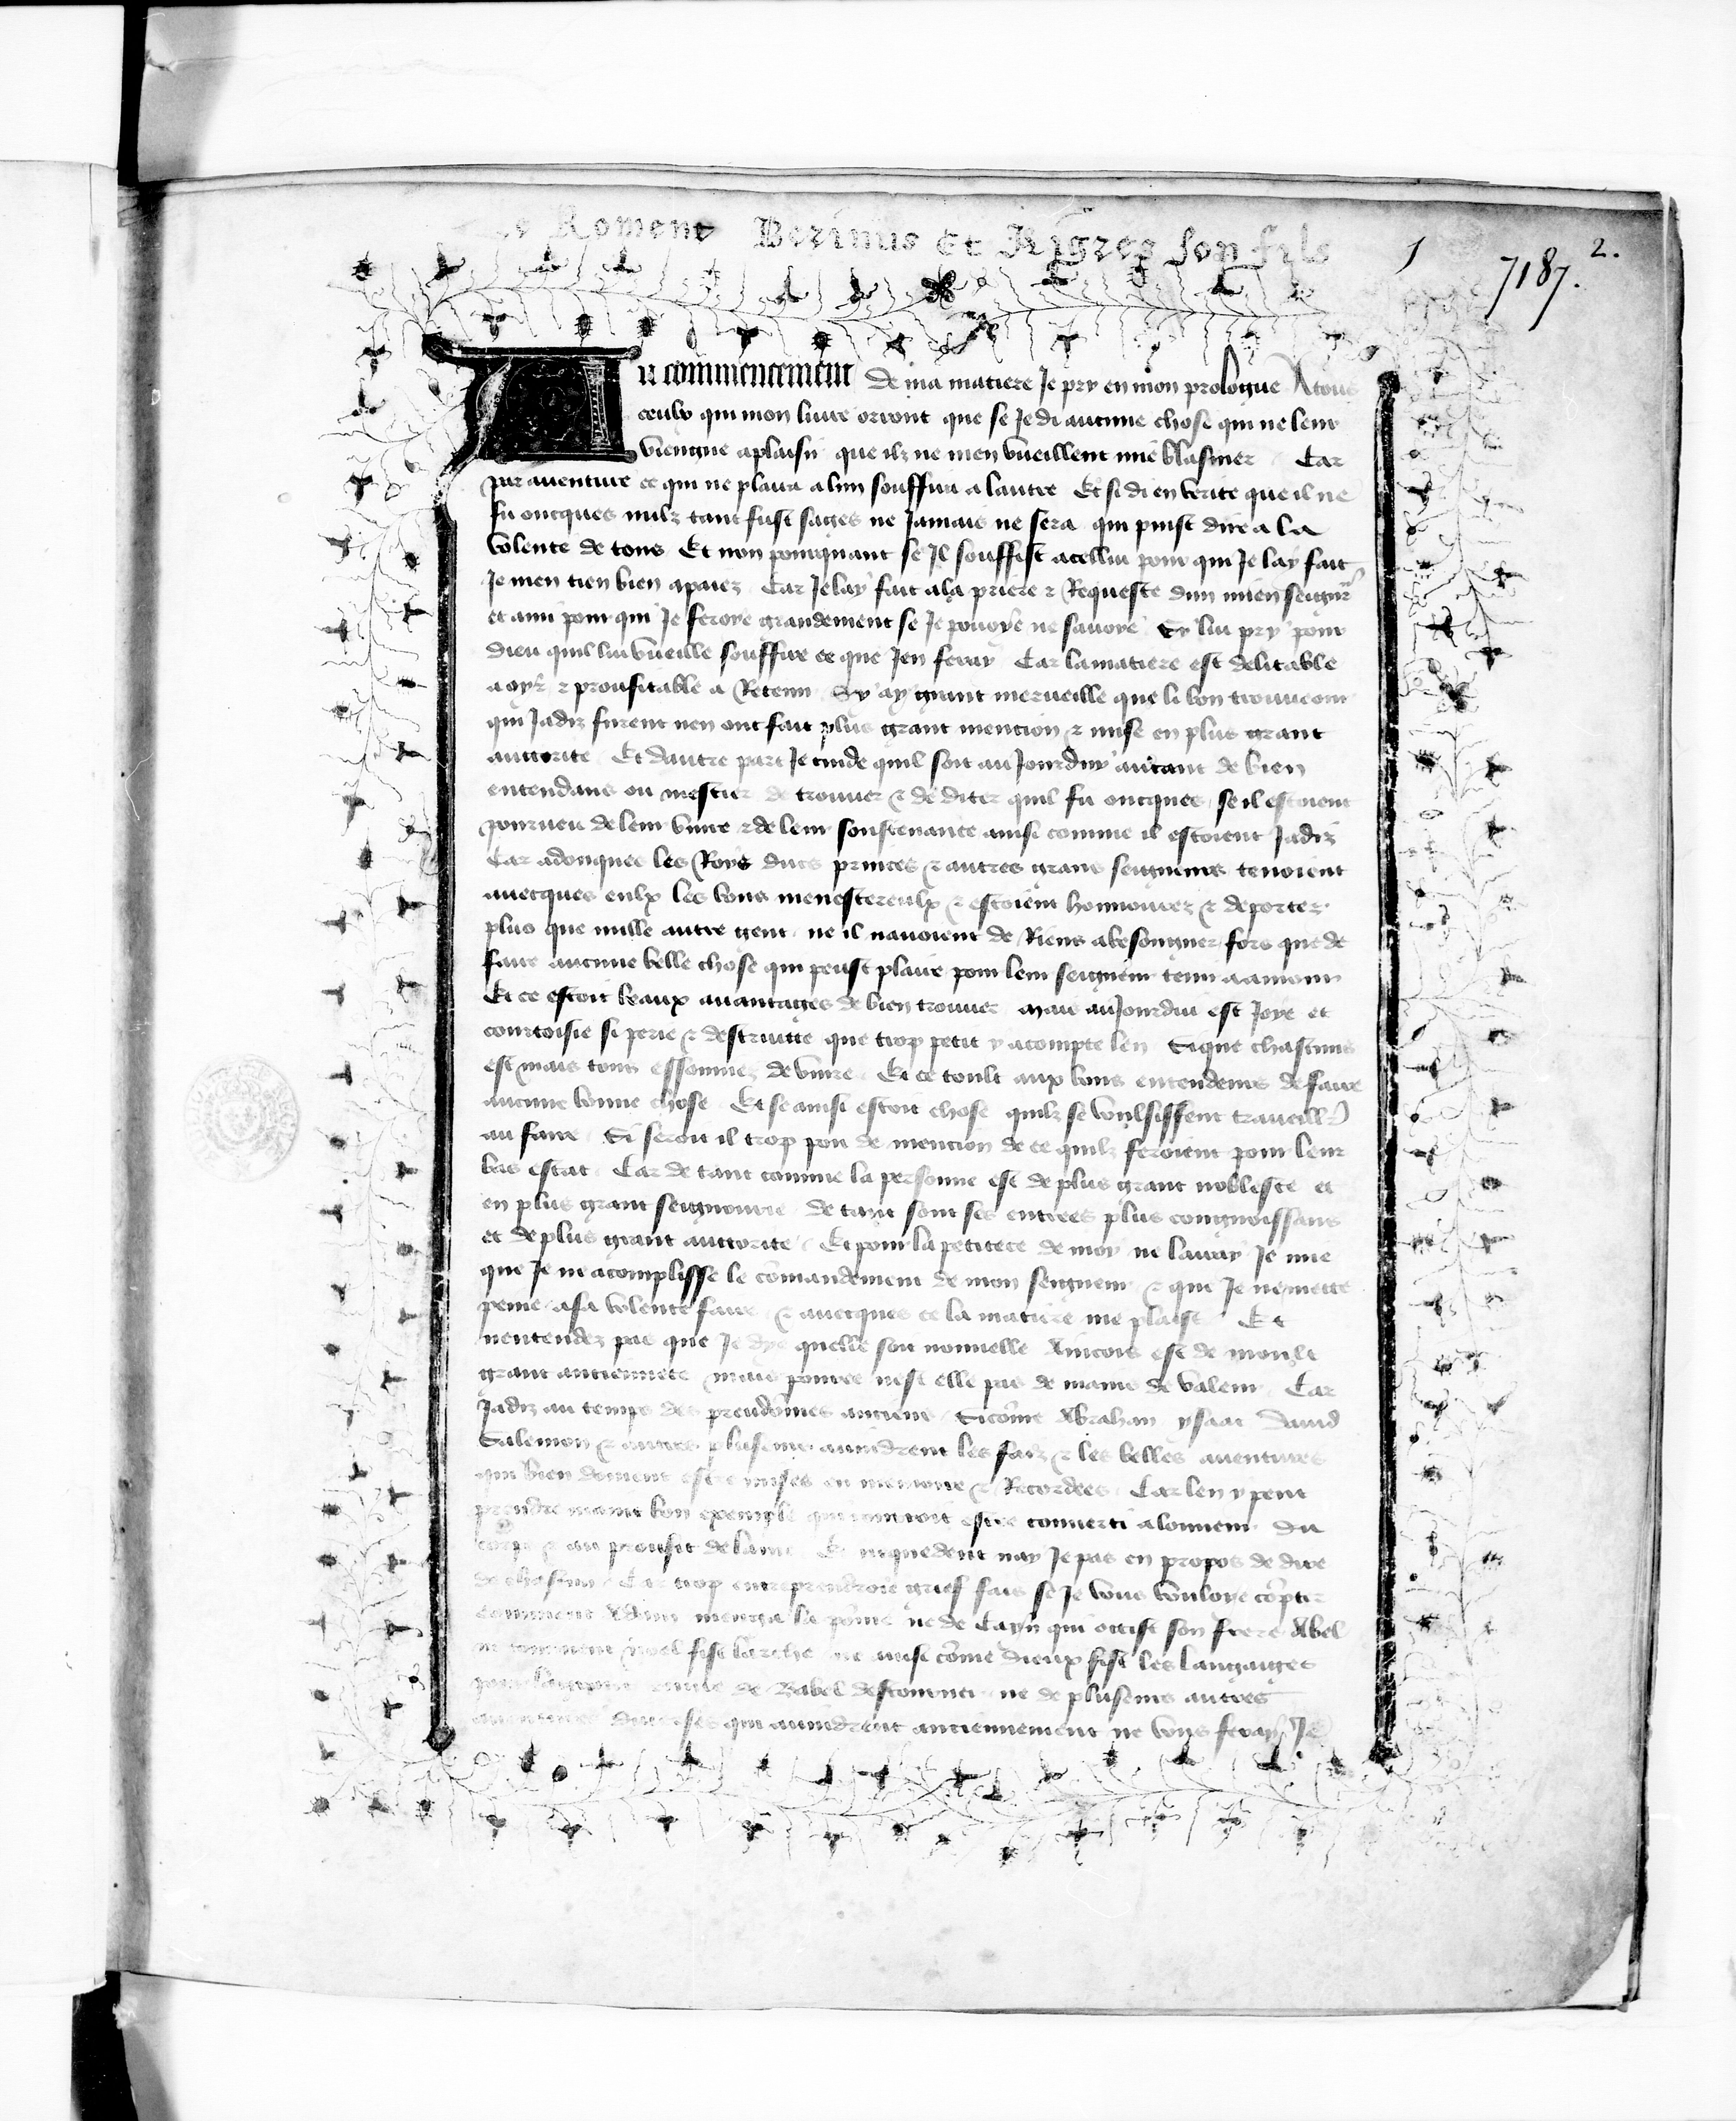 Roment Berinus Et Aigres son fils
1
7187.
2.
Au commencement de ma matiere Je pry en mon prologue A tous
ceulx qui mon livre orront que se Je di aucune chose qui ne leur
viengne a plaisir que ilz ne men vueillent mie blasmer Car
par aventure ce qui ne plaira a lun souffira a lautre Et si di en verite que il ne
fu oncques nulz tant fust sages ne Jamais ne sera qui puist dire a la
volente de tous Et non pourquant se Il souffist a cellui pour qui Je lay fait
Je men tien bien apaiez Car Je lay fait a la priere ⁊ Requeste dun mien seignr
et ami pour qui Je feroye grandement se Je povoye ne savoye Sy lui pry pour
dieu quil lui vueille souffire ce que Jen feray Car la matiere est delitable
a oyr ⁊ proufitable a Retenir Sy ay grant merveille que li bon trouveour
qui Jadiz furent nen ont fait plus grant mencion ⁊ mise en plus grant
auctorite Et dautre part Je cuide quil soit au Jourduy autant de bien
entendans ou mestier de trouver ⁊ de diter quil fu oncques se il estoient
pourveu de leur vivre ⁊ de leur soustenance ainsi comme il estoient Jadiz
Car adonques les Roys ducs princes ⁊ autres grans seigneurs tenoient
avecques eulx les bons menestereulx ⁊ estoient honnourez ⁊ deportez
plus que nulle autre gent ne il navoient de Riens a besongner fors que de
faire aucune belle chose qui peust plaire pour leur seigneur tenir a amour
Et ce estoit beaux avantages de bien trouver mais au Jourdui est Joye et
courtoisie si perie ⁊ destruite que trop petit y acompte len Si que chascuns
est mais tous essonniez de vivre Et ce toult aux bons entendeurs de faire
aucune bonne chose Et se ainsi estoit chose quilz se voulsissent traveillr
au faire Si seroit il trop pou de mencion de ce quilz feroient pour leur
bas estat Car de tant comme la personne est de plus grant noblesce et
en plus grant seignourie de tant sont ses entrees plus congnoissans
et de plus grant auctorite Et pour la petitece de moy ne lairay Je mie
que Je ne acomplisse le comandement de mon seigneur ⁊ que Je ne mette
peine a sa volente faire ⁊ avecques ce la matiere me plaist Et
nentendez pas que Je dye quelle soit nouvelle Aincois est de moult
grant anciennete mais pource nest elle pas de mains de valeur Car
Jadiz au temps des preudomes anciens Sicome Abraham ysaac David
Salemon ⁊ autres plusieurs avindrent les faiz ⁊ les belles aventures
qui bien doivent estre mises en memoire ⁊ Recordees Car len y peut
prendre maint bon exemple qui estre converti a lonneur du
corps ⁊ au proufit de lame Et nequedent nay Je pas en propos de dire
de chascun Car trop entreprendroie grief fais se Je vous vouloye copter
comment Adam menga la pome ne de Cayn qui occist son frere Abel
ne comment noel fist larche ne ainsi come dieux fist les langaiges
de Babel ne de plusieurs autres
aventures diverses qui avindrent anciennement ne vous feray Je